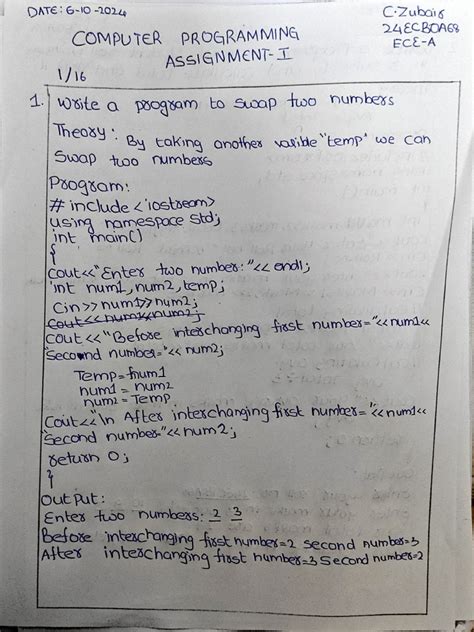 DATE: 6-10-2024
C.Zubair
24ECB0A68
ECE-A
COMPUTER PROGRAMMING
ASSIGNMENT-I
1/16
1. Write a program to swap two numbers
Theory: By taking another varible "temp" we can
swap two numbers
Program:
# include <iostream>
using namespace std;
int main()
{
cout<<"Enter two number:"<< endl;
int num1, num2, temp;
cin>>num1>>num2;
cout<<num1<<num2;
cout<<"Before interchanging first number="<<num1<<
"second number="<<num2;
Temp=num1
num1 = num2
num2 = Temp
cout<<"\n After interchanging first number="<<num1<<
"second number"<<num2;
return 0;
{
OUTPUT:
Enter two numbers: 2 3
Before interchanging first number=2 second number=3
After interchanging first number=3 Second number=2